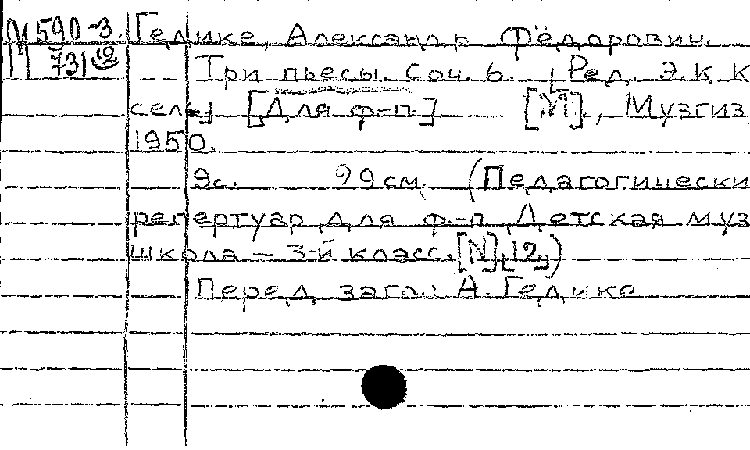 М 590-3. Гедике, Александр Фёдорович.
731 Три пьесы. Соч. 6. [Ред. Э. К. К
сел-] [Для ф-п.] [М]., Музгиз
1950.
9с. 29 см. (Педагогически
репертуар для ф-п Детская муз
школа — 3-й класс. [N][12])
Перед загл.: А. Гедике